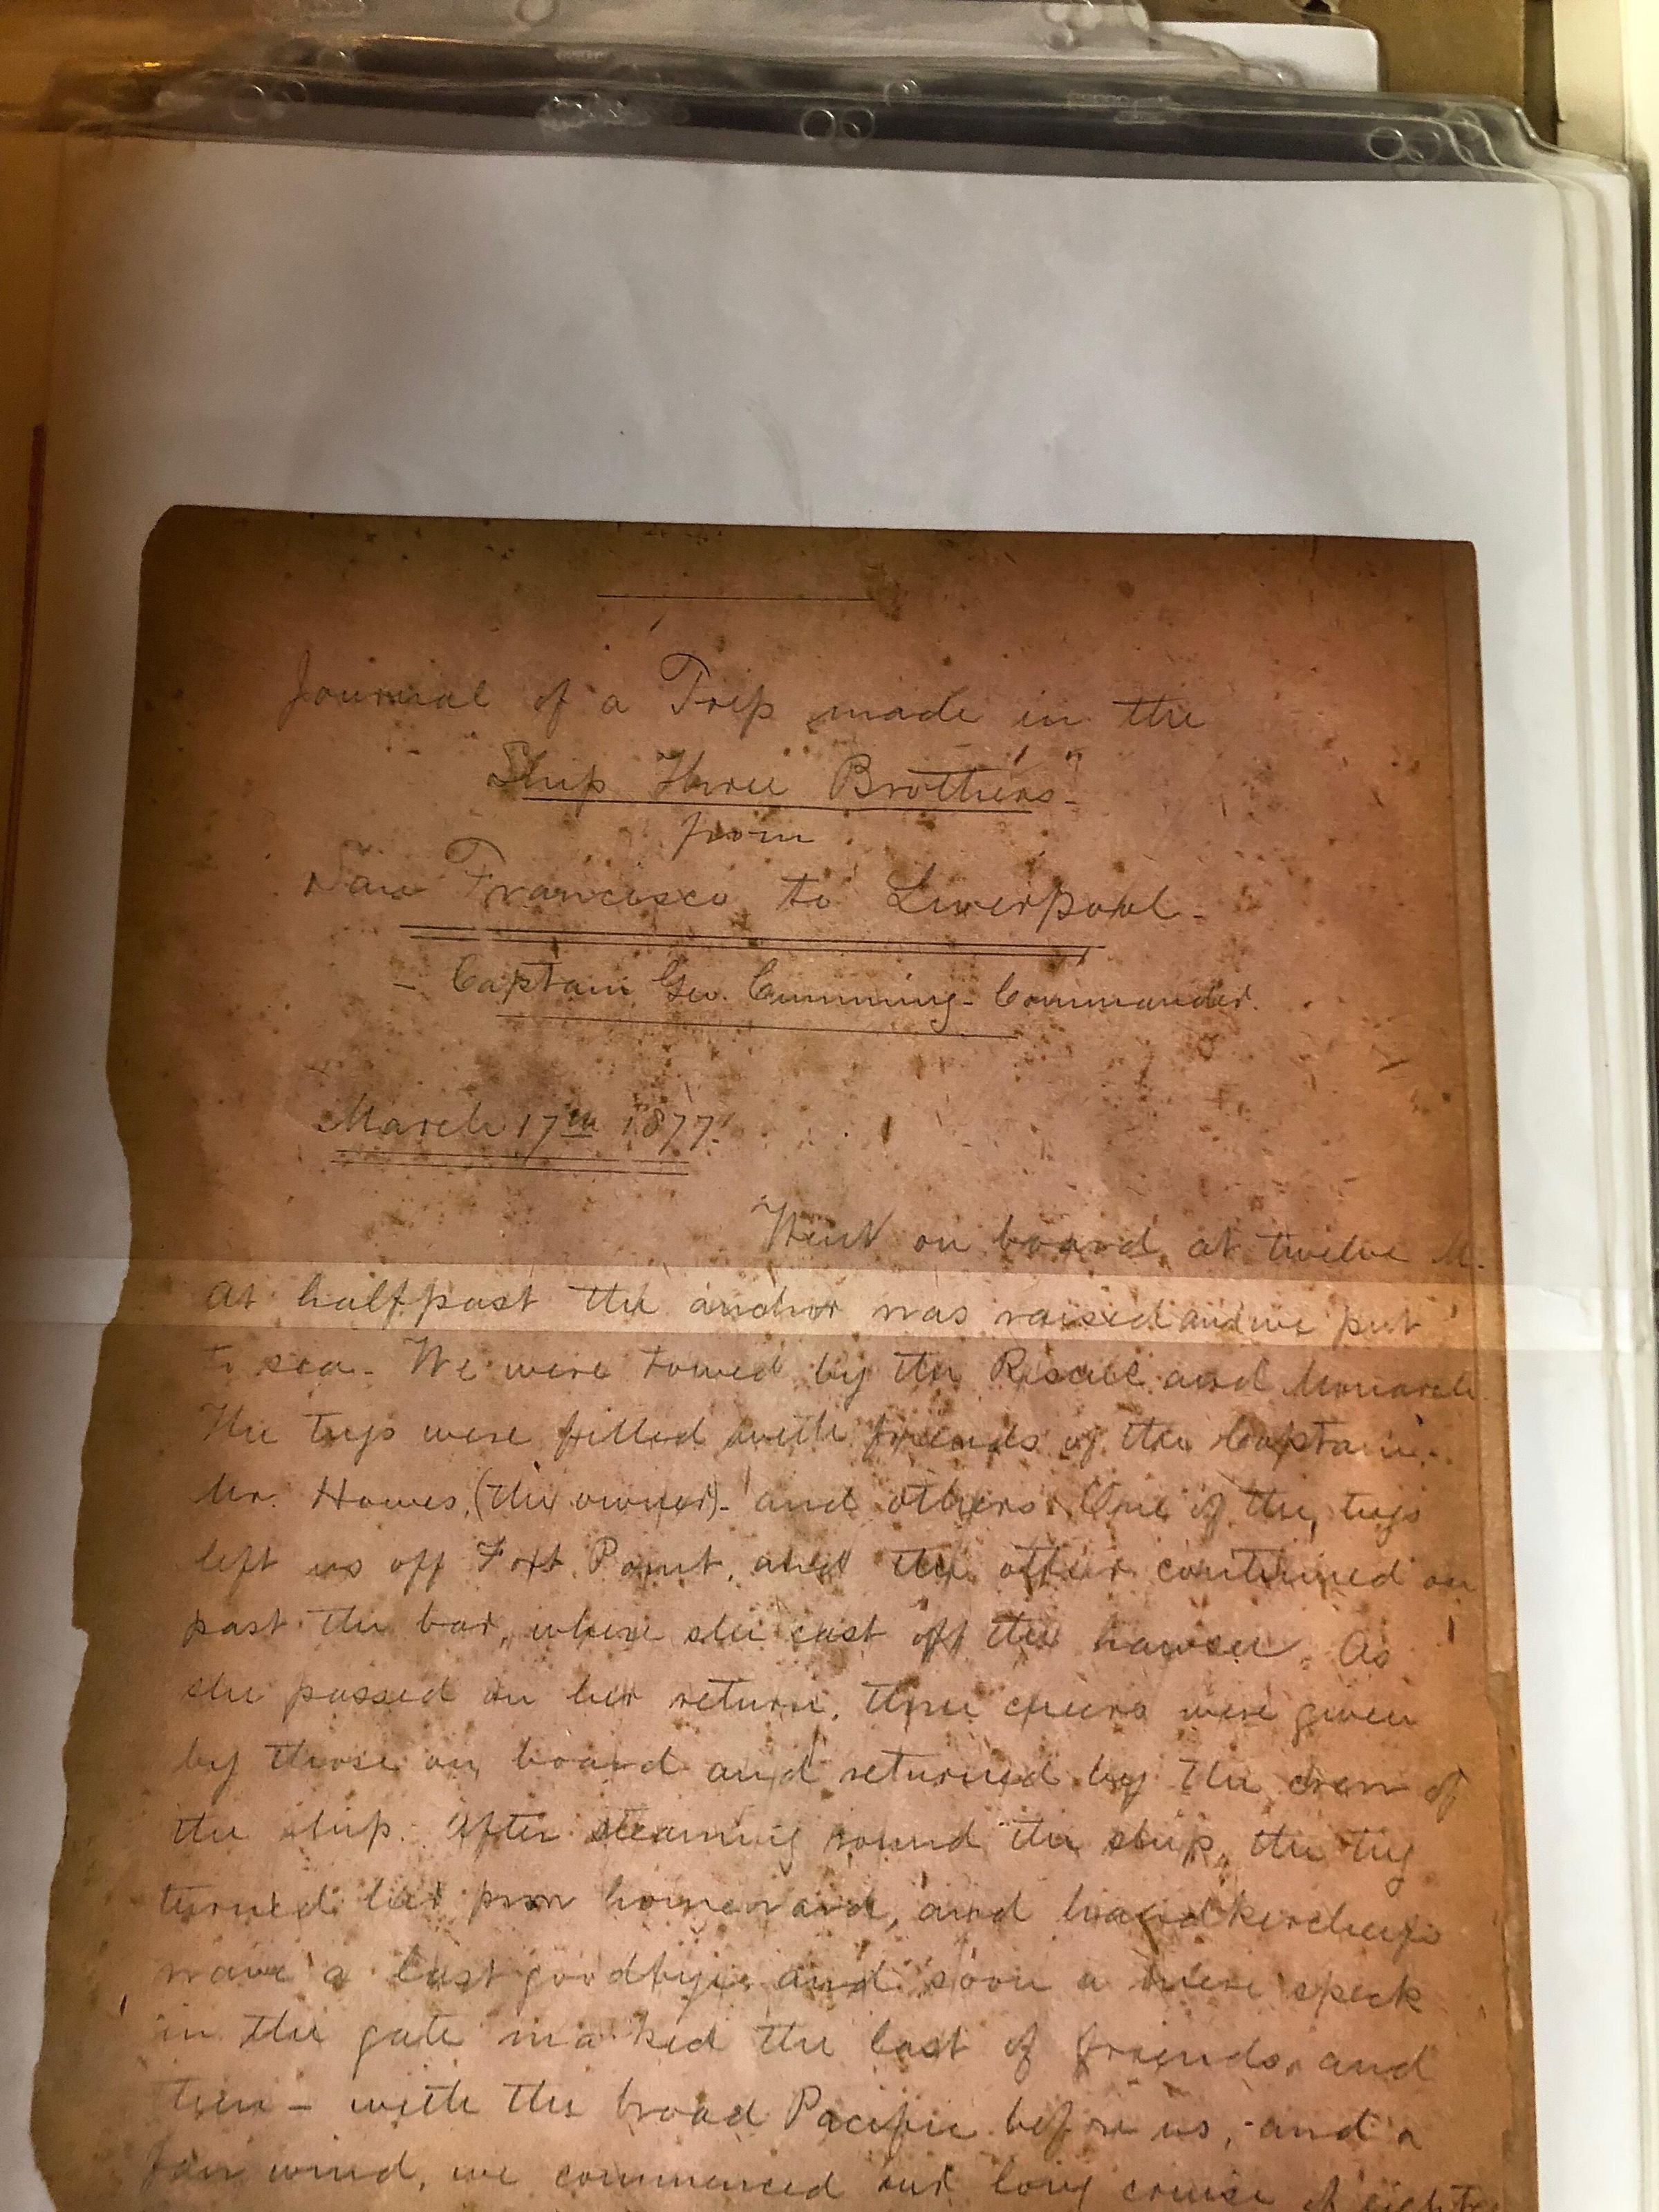 Journal of a Trip made in the
Ship "Three Brothers"
from
San Francisco to Liverpool-
- Captain Geo. Cumming- Commander.
March 17th 1877.
Went on board at twelve M.
At half past the anchor was raised and we put
to sea- We were towed by the Rescue and Monarch
The tugs were filled with friends of the Captain,
Mr. Howes, (the owner)- and others. One of the tugs
left us off Fort Point, and the other continued on
past the bar, where she cast off the hawser. As
she passed on her return, three cheers were given
by those on board and returned by the crew of
the ship. After steaming round the ship, the tug
turned her prow homeward, and handkerchiefs
wave a last goodbye and soon a mere speck
in the gate marked the last of friends, and
then - with the broad Pacific before us, and a
fair wind, we commenced our long cruise of